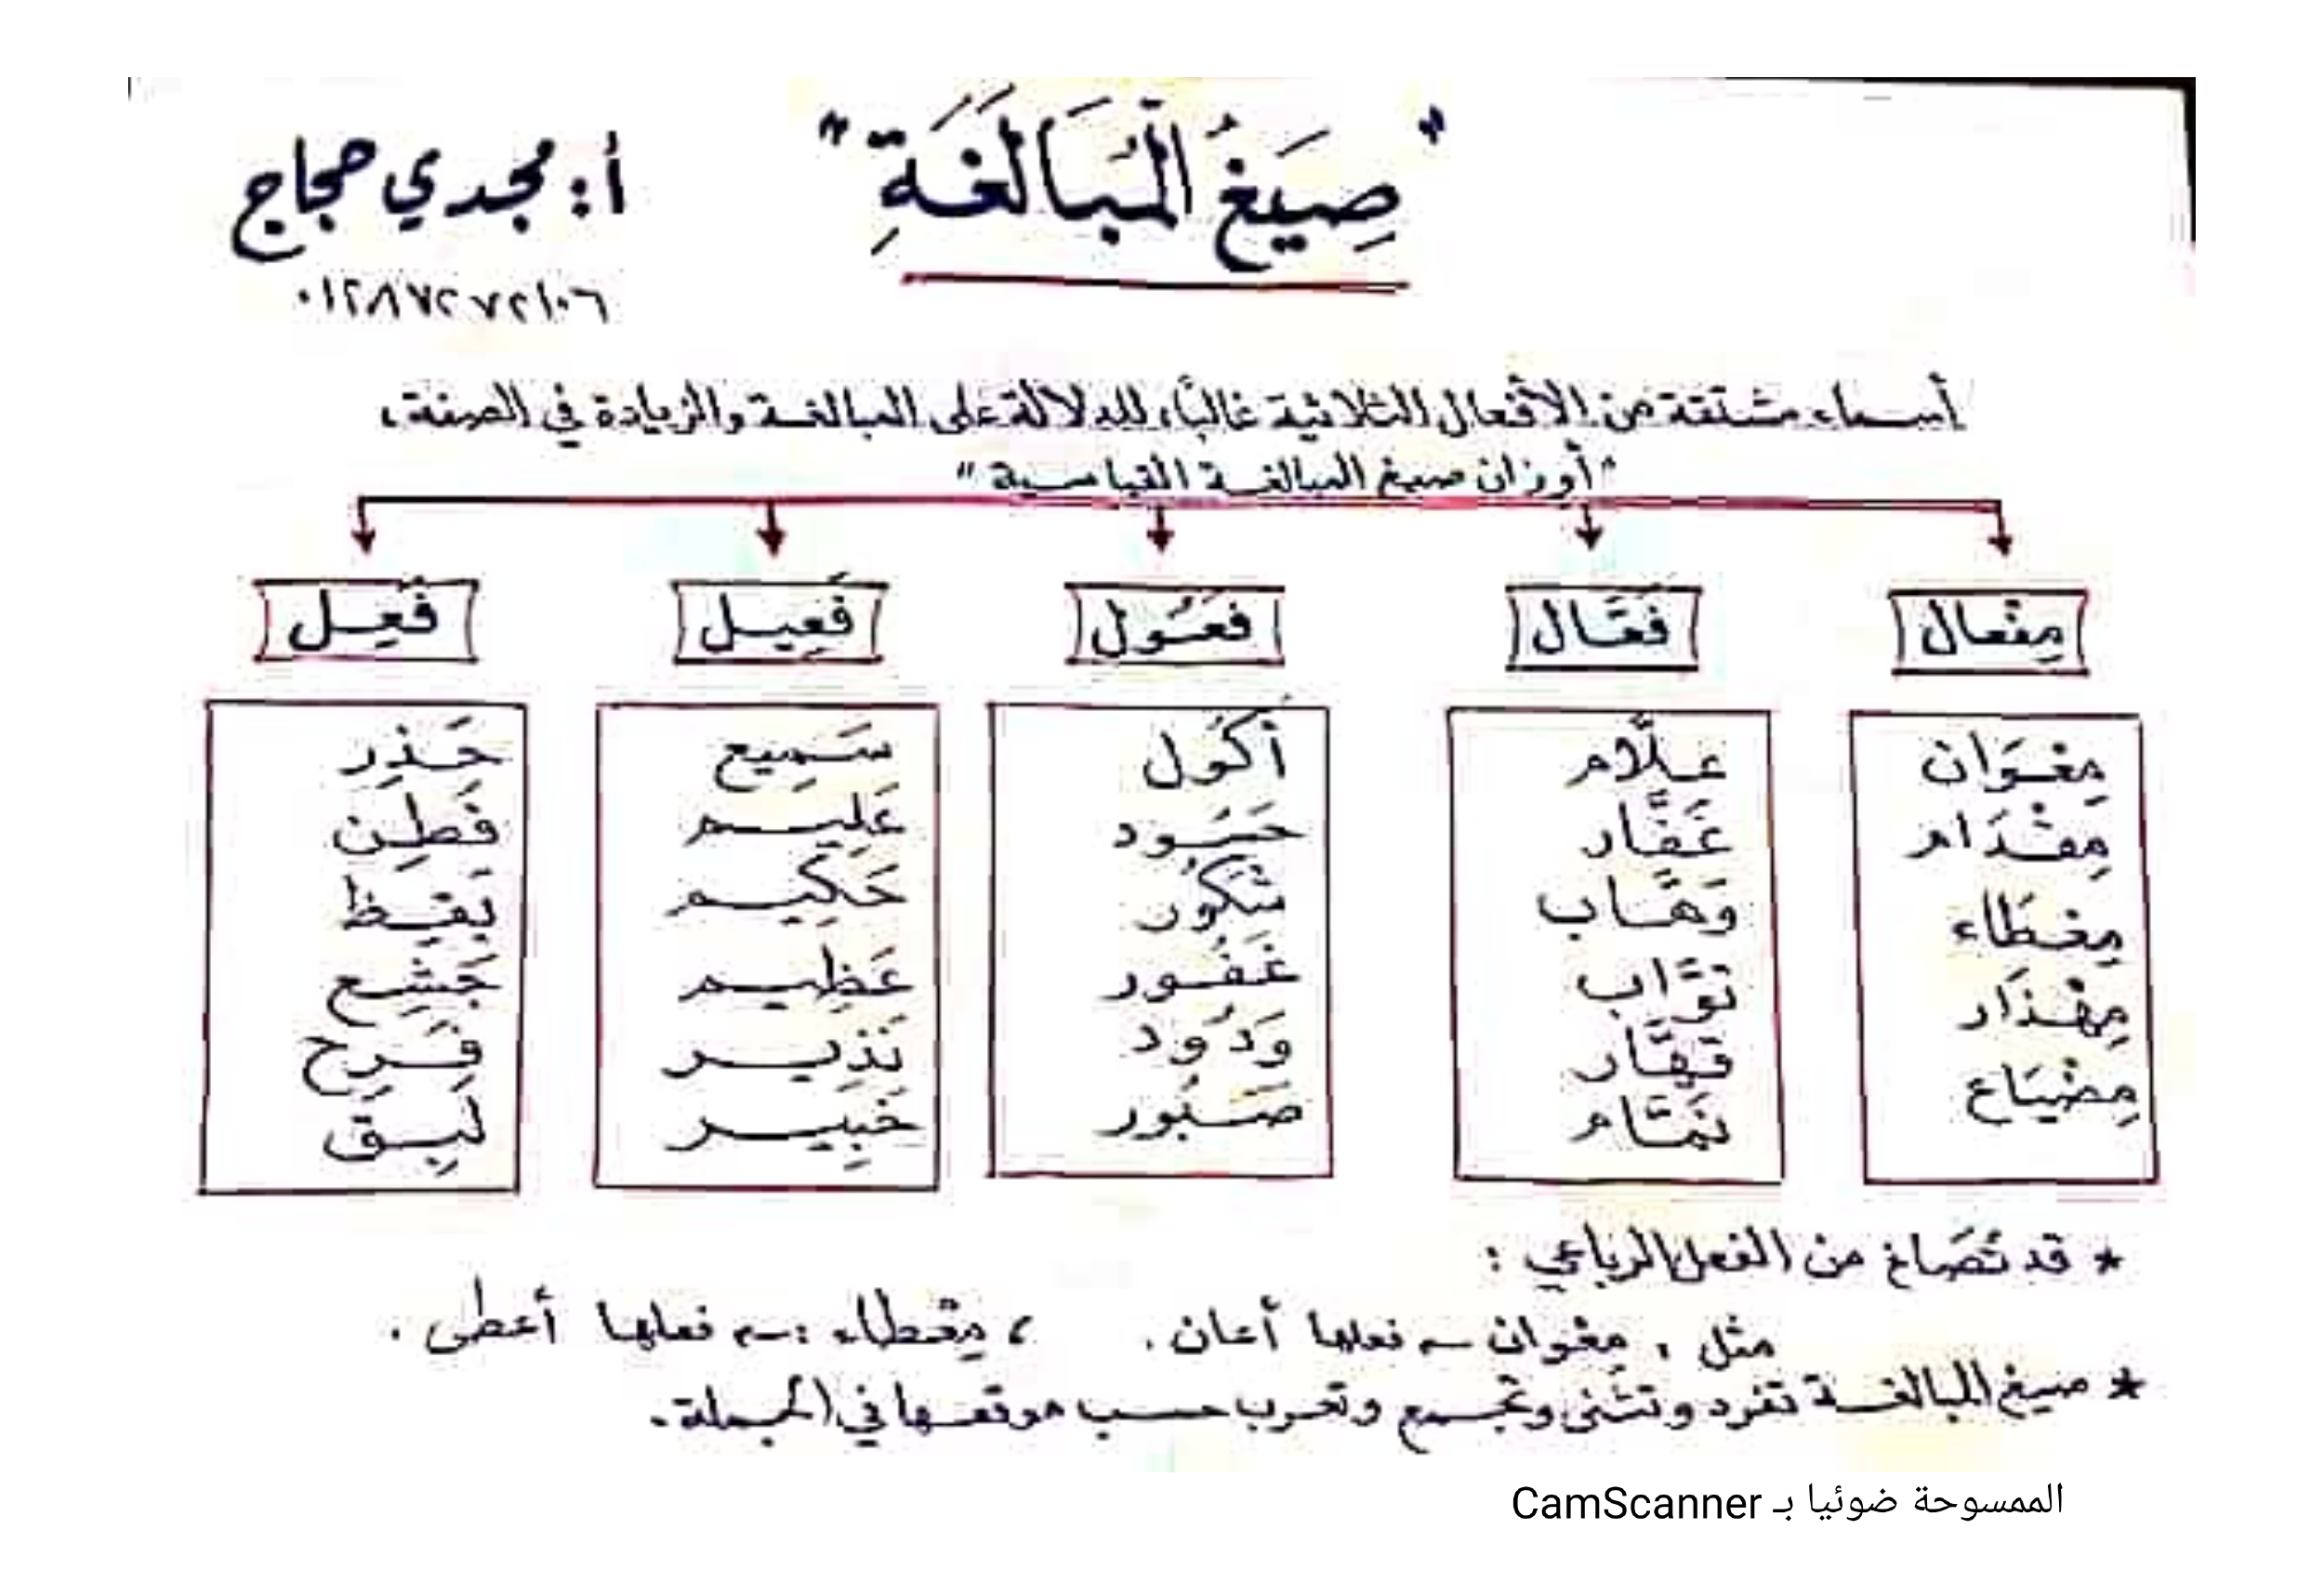 "صِيَغُ الْمُبَالَغَةِ"
أ: مجدي حجاج
٠١٢٨٧٢٧٢١٠٦
أسماء مشتقة من الأفعال الثلاثية غالبًا، للدلالة على المبالغة والزيادة في الصفة،
"أوزان صيغ المبالغة القياسية"
مِفْعال فَعَّال فَعُول فَعِيل فَعِل
مِعْوَان علَّام أَكُول سَمِيع حَذِر
مِقْدَام غَفَّار حَسُود عَلِيم فَطِن
مِعْطَاء وَهَّاب شَكُور حَكِيم يَقِظ
مِهْذَار تَوَّاب غَفُور عَظِيم جَشِع
مِضْيَاع قَهَّار وَدُود نَذِير فَرِح
نَمَّام صَبُور خَبِير لَبِق
* قد تُصَاغ من الفعل الرباعي:
مثل، مِعْوان ← فعلها أعان. ، مِعْطاء: ← فعلها أعطى.
* صيغ المبالغة تفرد وتثنى وتجمع وتعرب حسب موقعها في الجملة.
الممسوحة ضوئيا بـ CamScanner